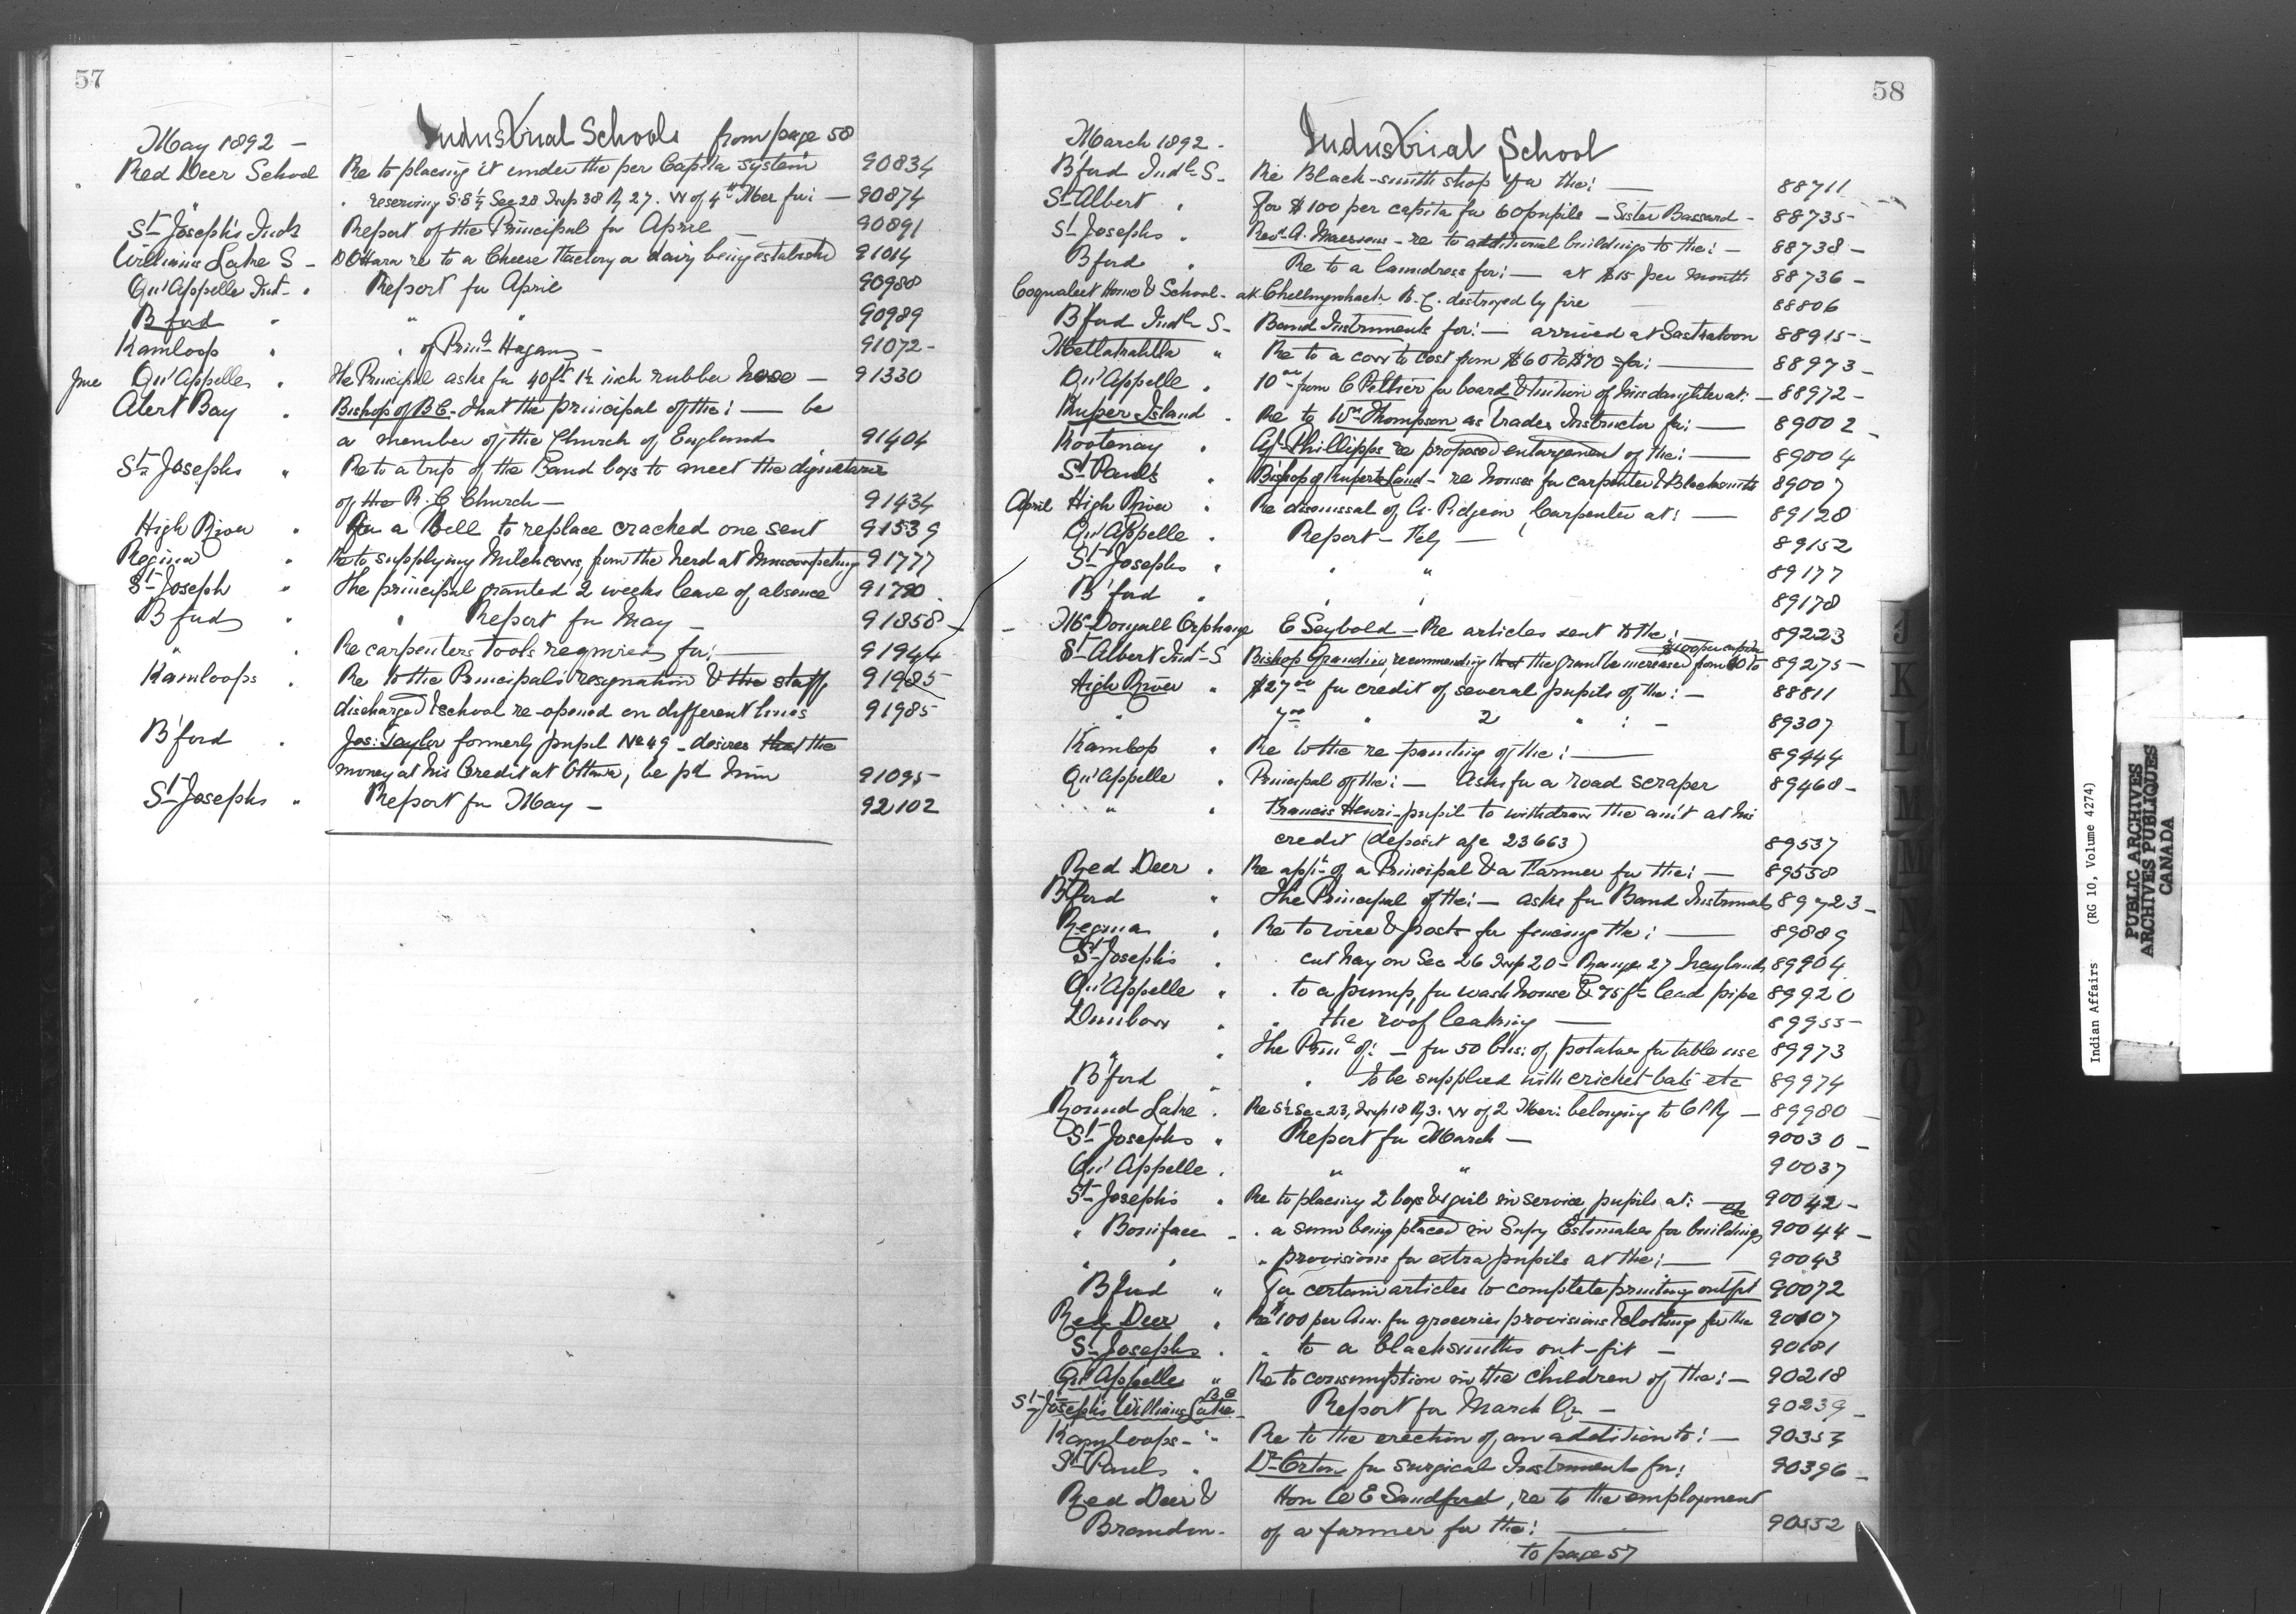 57
Industrial Schools from page 58
May 1892 -
Red Deer School Re to placing it under the per Capita system 90834
" . reserving S.E ¼ Sec 28 Twp 38 R 27. W of 4th Mer for: — 90874
St Joseph's Indl Report of the Principal for April — 90891
Williams Lake S - D O'Hara re to a Cheese Factory or dairy being established 91014
Qu'Appelle Ind - . Report for April 90988
B'ford " " " 90989
Kamloop " . of Princl Hagan - 91072 -
June Qu'Appelle . The Principal asks for 40 ft 1½ inch rubber hose — 91330
Alert Bay . Bishop of B C - that the principal of the: — be
a member of the Church of England 91404
St Josephs " Re to a trip of the Band boys to meet the dignitaries
of the R. C Church — 91434
High River " For a Bell to replace cracked one sent 91539
Regina " Re to supplying Milch cows, from the herd at 91777
St Joseph " The principal granted 2 weeks leave of absence 91790
B'ford " . Report for May - 91858 -
" . Re carpenters tools required for: — 91944
Kamloops . Re to the Principals resignation & the staff 91985
discharged & school re-opened on different lines 91985
B'ford . Jos: Taylor formerly pupil No 49 - desires that the
money at his Credit at Ottawa, be pd him 91095 -
St Josephs " Report for May - 92102
58
Industrial School
March 1892 -
B'ford Indl S - Re Black-smith shop for the: — 88711
St Albert . For $100 per capita for 60 pupils - Sister Bassard - 88735 -
St Josephs . Revd A. - re to additional buildings to the: - 88738 -
B'ford . Re to a laundress for: — at $15 per month 88736 -
Coqualeet Home & School - at B. C. destroyed by fire 88806
B'ford Indl S - Band Instruments for: — arrived at Saskatoon 88915 -
Metlakahtla " Re to a cow to cost from $60 to $70 for: — 88973 -
Qu'Appelle . 10 00 from C Peltier for board & tuition of his daughter at: - 88972 -
Kuper Island . Re to Wm Thompson as trades Instructor for: — 89002 -
Kootenay . Agt Phillipps re proposed enlargement of the: — 89004
St Pauls . Bishop of Ruperts Land - re houses for carpenter & Blacksmith 89007
April High River . Re dismissal of A. Pidgeon, Carpenter at: — 89128
Qu'Appelle . Report - Feby — 89152
St Josephs " " " 89177
B'ford . " " 89178
- McDougall Orphange E Seybold - Re articles sent to the: 89223
$100 per capita
St Albert Indl - S Bishop Grandin, recommending that the grant be increased from 60 to 89275 -
High River " $27 00 for credit of several pupils of the: - 88811
" 7 00 " 2 " : - 89307
Kamloop " Re to the re-painting of the: — 89444
Qu'Appelle . Principal of the: — Asks for a road scraper 89468 -
" " Francis Henri - pupil to withdraw the am't at his
credit (deposit a/c 23663) 89537
Red Deer . Re appt of a Principal & a Farmer for the: — 89558
B'ford " The Principal of the: — asks for Band Instrumts 89723 -
Regina . Re to wire & posts for fencing the: — 89889
St Joseph's . . cut hay on Sec 26 Twp 20 - Range 27 hay lands 89904
Qu'Appelle " . to a pump for wash house & 75 ft lead pipe 89920
Dunbow . " the roof leaking — 89955 -
" . The Prinl of: - for 50 bus: of potatoes for table use 89973
B'ford " . To be supplied with cricket bats etc 89974
Round Lake . Re S½ Sec 23, Twp 18 R 3. W of 2 Mer: belonging to C P Ry - 89980 -
St Josephs " Report for March - 90030 -
Qu'Appelle . " " 90037
St Josephs . Re to placing 2 boys & girl in service pupils at: — 90042 -
" Boniface - . a sum being placed in Supy Estimates for buildings etc 90044 -
" " " provisions for extra pupils at the: — 90043
B'ford " For certain articles to complete printing outfit 90072
Red Deer . Re $100 per Ann. for groceries provisions & clothing for the 90107
St Josephs . " to a blacksmiths out-fit - 90181
Qu'Appelle " Re to consumption in the children of the: - 90218
St Josephs Williams Lake B C - Report for March Qr - 90239 -
Kamloops - " Re to the erection of an addition to: - 90353
St Pauls . Dr Orton for surgical Instruments for: 90396 -
Red Deer & Hon W E Sandford, re to the employment
Brandon - of a farmer for the: — 90552
to page 57
J
K
L
M
N
O
P
S
Indian Affairs (RG 10, Volume 4274)
PUBLIC ARCHIVES
ARCHIVES PUBLIQUES
CANADA